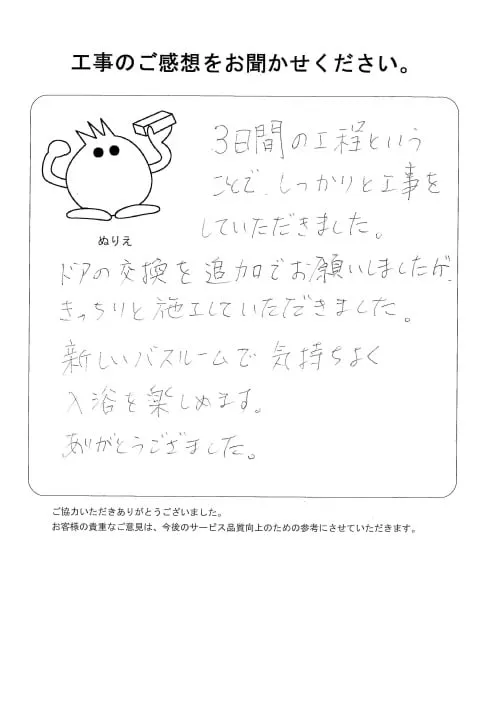 工事のご感想をお聞かせください。
3日間の工程という
ことで、しっかりと工事を
していただきました。
ぬりえ
ドアの交換を追加でお願いしましたが、
きっちりと施工していただきました。
新しいバスルームで気持ちよく
入浴を楽しめます。
ありがとうございました。
ご協力いただきありがとうございました。
お客様の貴重なご意見は、今後のサービス品質向上のための参考にさせていただきます。